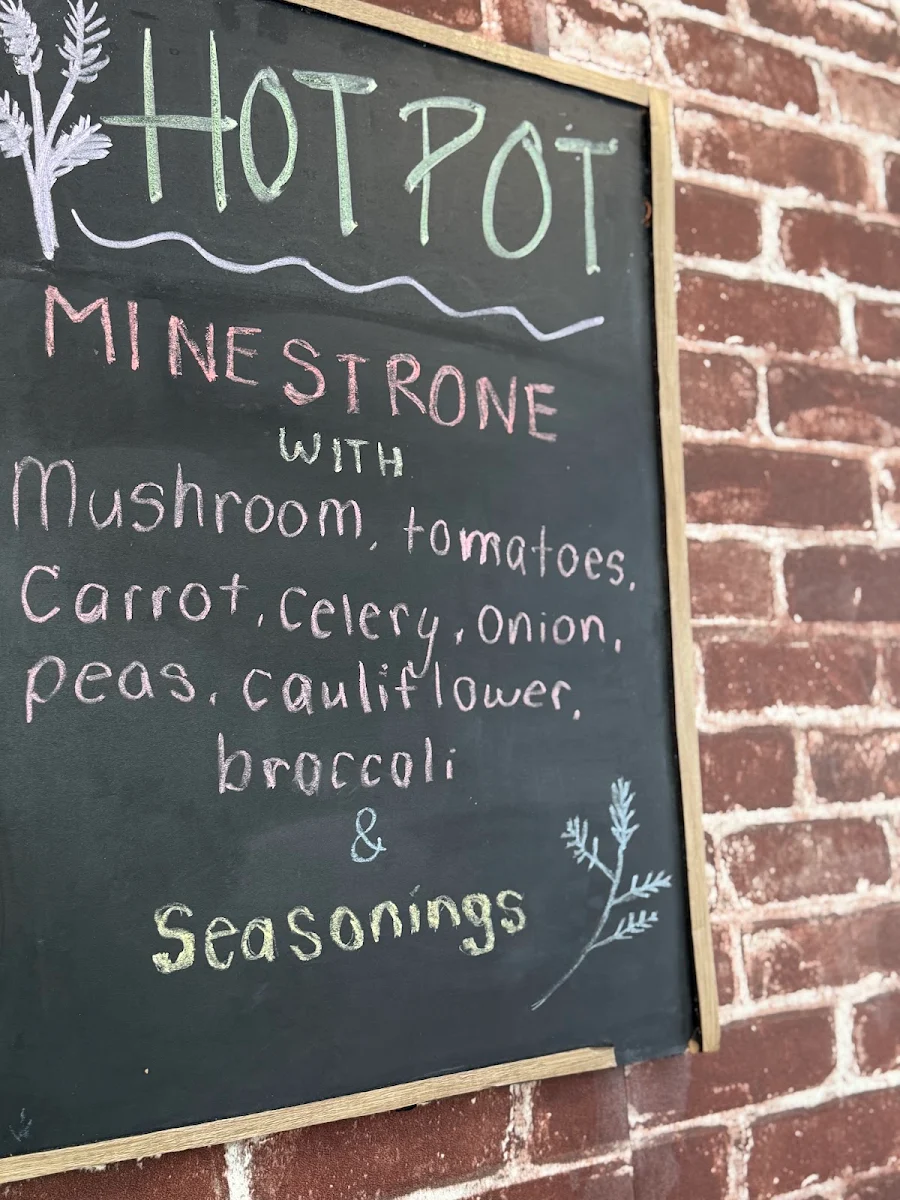 HOT POT
MINESTRONE
WITH
Mushroom, tomatoes,
Carrot, Celery, Onion,
Peas, cauliflower,
broccoli
&
Seasonings